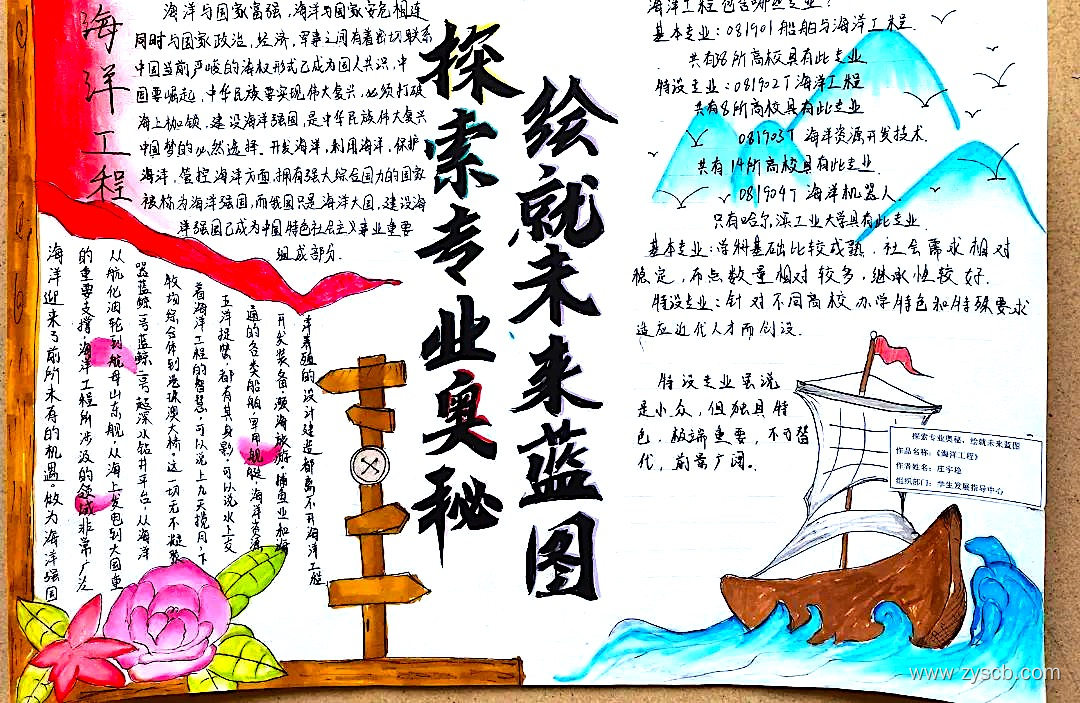 海洋工程
海洋与国家富强，海洋与国家安危相连
同时与国家政治，经济，军事之间有着密切联系
中国当前严峻的海权形式已成为国人共识，中
国要崛起，中华民族要实现伟大复兴，必须打破
海上枷锁，建设海洋强国，是中华民族伟大复兴
中国梦的必然选择。开发海洋，利用海洋，保护
海洋，管控海洋方面，拥有强大综合国力的国家
被称为海洋强国，而我国只是海洋大国，建设海
洋强国已成为中国特色社会主义事业重要
组成部分.
探索专业奥秘
绘就未来蓝图
海洋工程包含哪些专业？
基本专业：081901 船舶与海洋工程.
共有38所高校具有此专业
特设专业：081902T 海洋工程
共有8所高校具有此专业
081903T 海洋资源开发技术.
共有14所高校具有此专业.
081904T 海洋机器人.
只有哈尔滨工业大学具有此专业.
基本专业：学科基础比较成熟，社会需求相对
稳定，布点数量相对较多，继承性较好.
特设专业：针对不同高校办学特色和特殊要求
适应近代人才而创设.
特设专业虽说
是小众，但独具特
色，极端重要，不可替
代，前景广阔。
洋养殖的设计建造都离不开海洋工程
开关装备，濒海旅游，捕鱼业和海
通的各类船舶，军用舰艇，海洋资源
五洋捉鳖，都有其身影，可以说水上交
着海洋工程的智慧，可以说上九天揽月，下
牧场综合体到港珠澳大桥。这一切无不凝聚
器蓝鲸一号蓝鲸二号超深水钻井平台，从海洋
从航化油轮到航母山东舰，从海上发电到大国重
的重要支撑，海洋工程所涉及的领域非常广泛
海洋迎来了前所未有的机遇。做为海洋强国
探索专业奥秘，绘就未来蓝图
作品名称：《海洋工程》
作者姓名：庄宇稳
组织部门：学生发展指导中心
www.zyscb.com